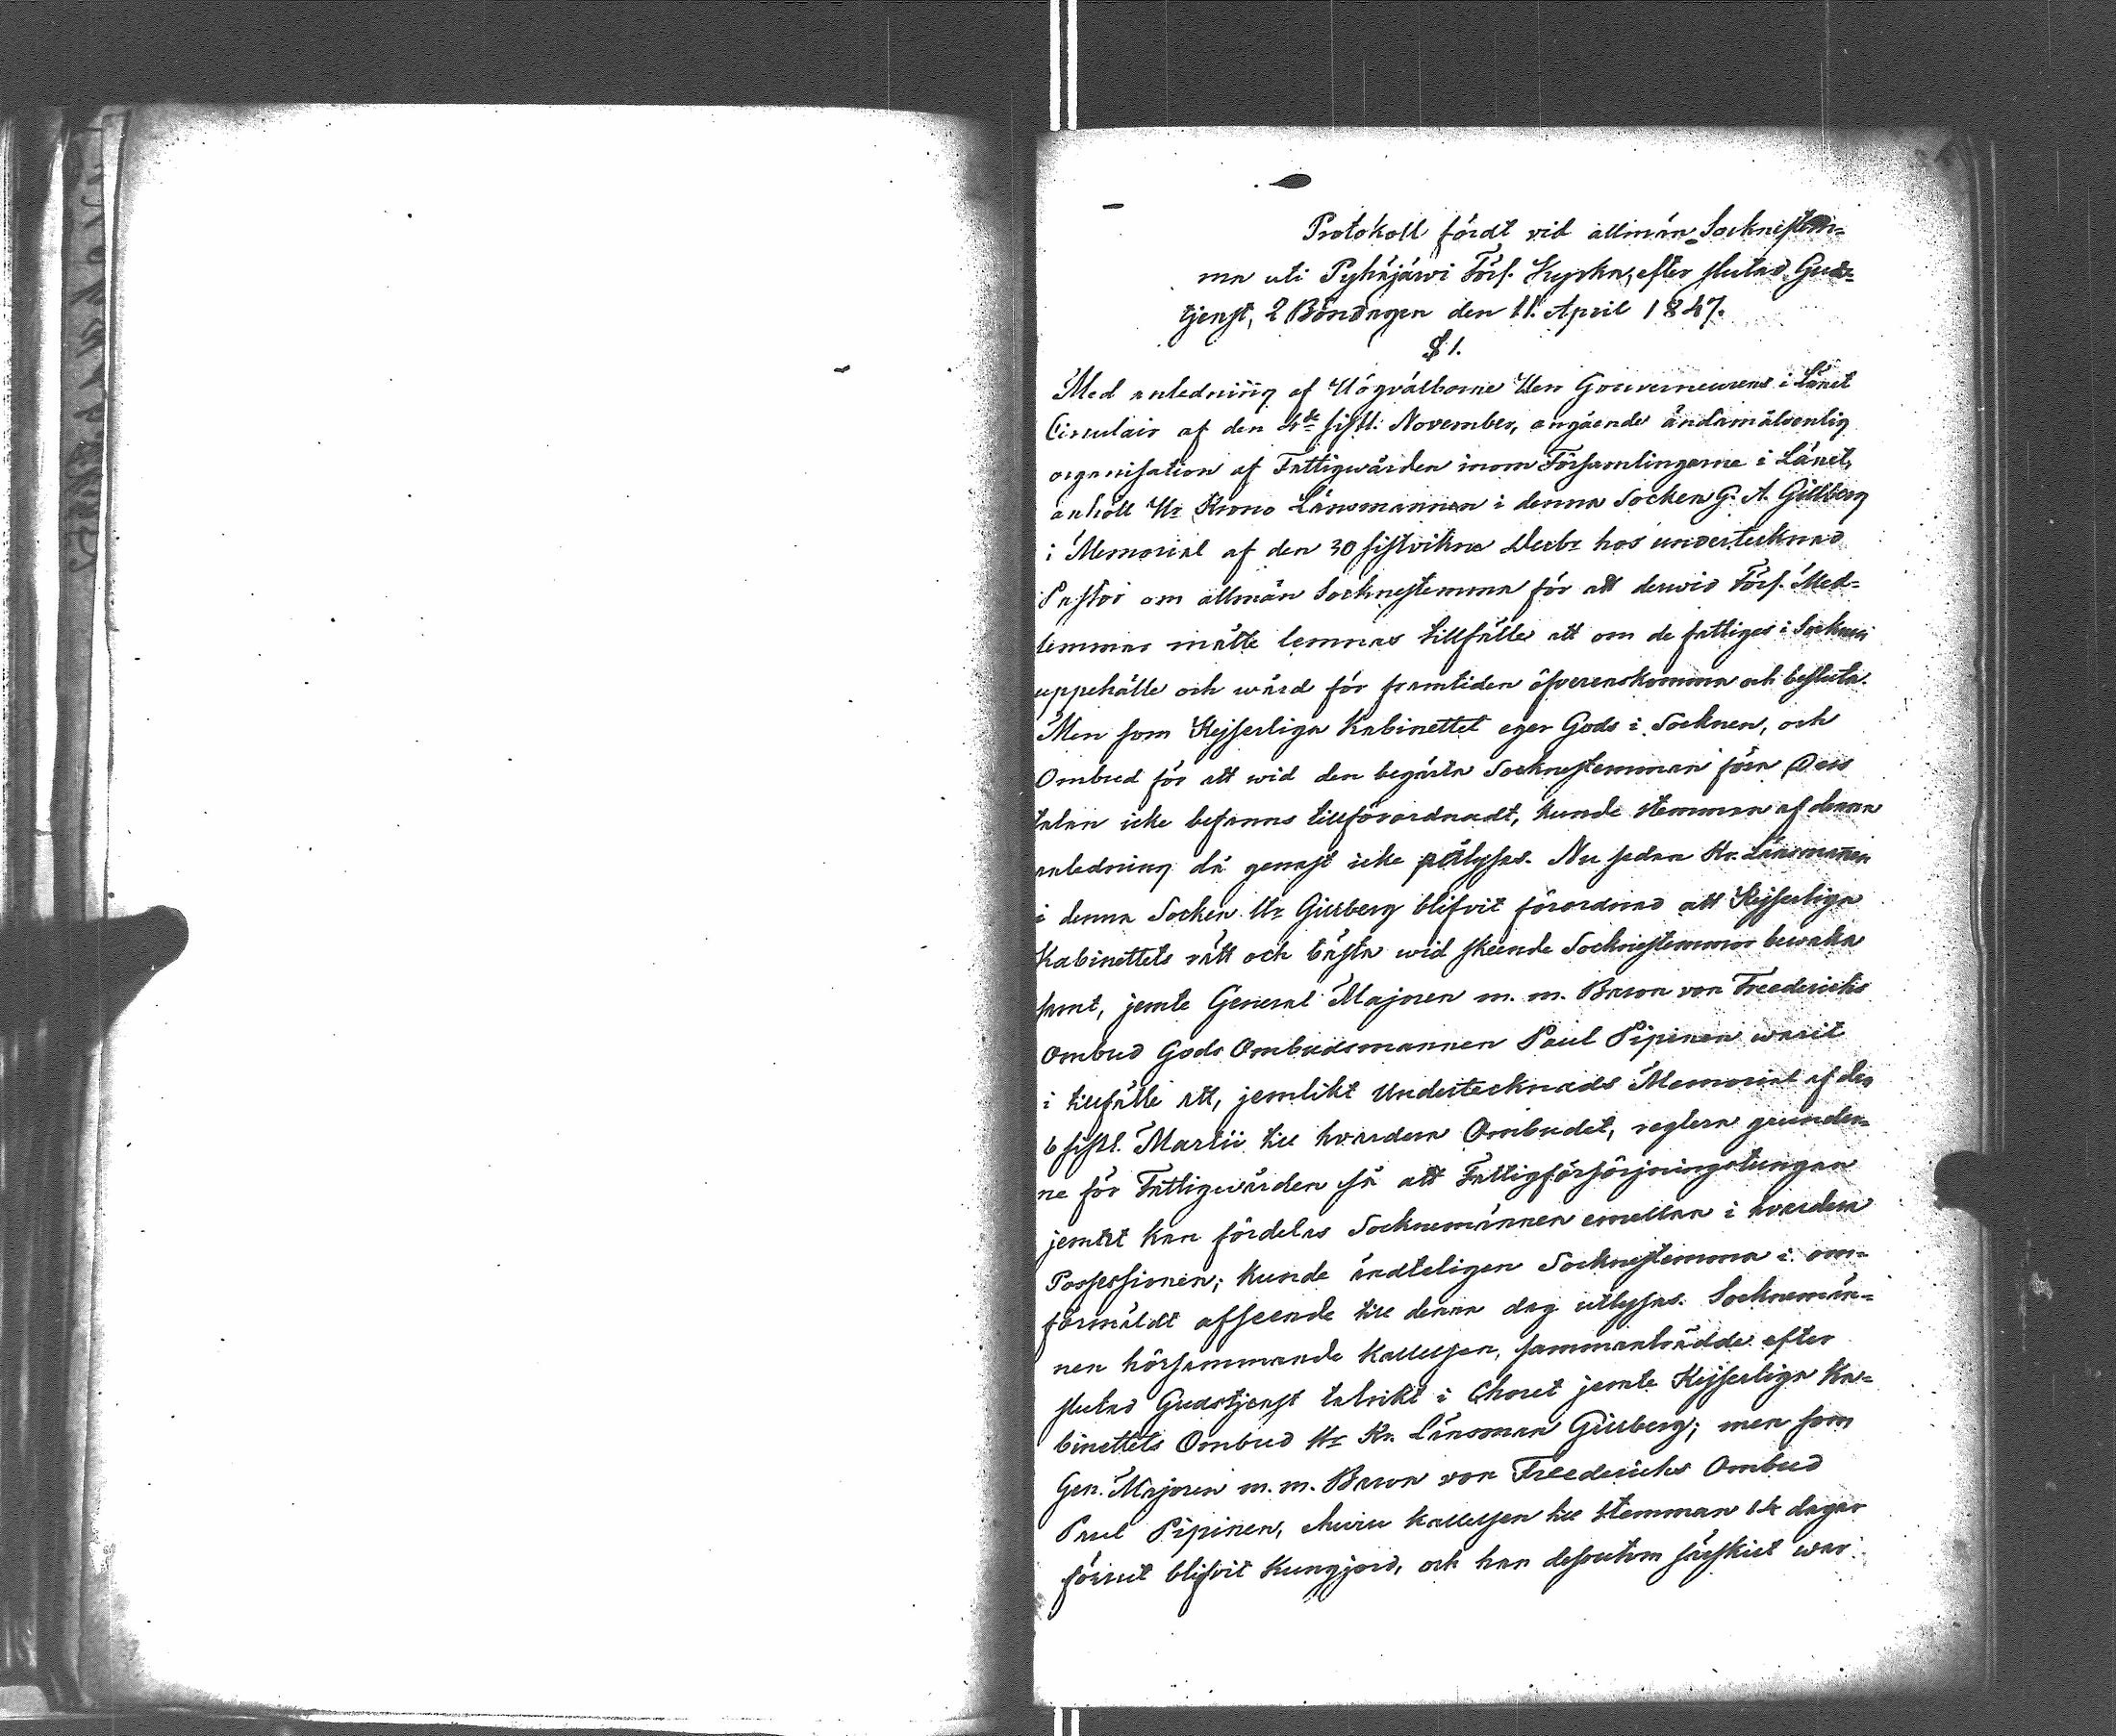 Protokoll fördt vid allmän Socknestem-
ma uti Pyhäjärwi Förs. Kyrka, efter slutad Guds-
tjenst, 2 Böndagen den 11. April 1847.
§ 1.
Med anledning af Högvälborne Herr Gouverneurens i Länet
Circulair af den 4de sistl. November, angående ändamålsenlig
organisation af Fattigwården inom Församlingarne i Länet,
anhöll Hr Krono Länsmannen i denna Socken G. A. Gillberg
i Memorial af den 30 sistvikne Decbr hos undertecknad
Pastor om allmän Socknestemma för att derwid Förs. Med-
lemmar måtte lemnas tillfälle att om de fattiges i Socknen
uppehälle och wård för framtiden öfverenskomma och besluta.
Men som Kejserliga Kabinettet eger Gods i Socknen, och
Ombud för att wid den begärta Socknestemman föra Dess
talan icke befanns tillförordnadt, kunde stemman af denna
anledning då genast icke pålysas. Nu sedan Kr. Länsmannen
i denna Socken Hr Gillberg blifvit förordnad att Kejserliga
Kabinettets rätt och bästa wid skeende Socknestemmor bewaka
samt, jemte General Majoren m. m. Baron von Freedericks
Ombud Gods Ombudsmannen Paul Pipinen warit
i tillfälle att, jemlikt Undertecknads Memorial af den
6 sistl. Martii till hvardera Ombudet, reglera grunder-
ne för Fattigwården så att Fattigförsörjningstungan
jemnt kan fördelas Socknemännen emellan i hvardera
Possessionen; kunde ändteligen Socknestemma i om-
förmäldt afseende till denna dag utlysas. Socknemän-
nen hörsammande kallelsen, sammanträdde efter
slutad Gudstjenst talrikt i Choret jemte Kejserliga Ka-
binettets Ombud Hr Kr. Länsman Gillberg; men som
Gen. Majoren m. m. Baron von Freedericks Ombud
Paul Pipinen, ehuru kallelsen till stemman 14 dagar
förrut blifvit kungjord, och han dessutom särskilt war